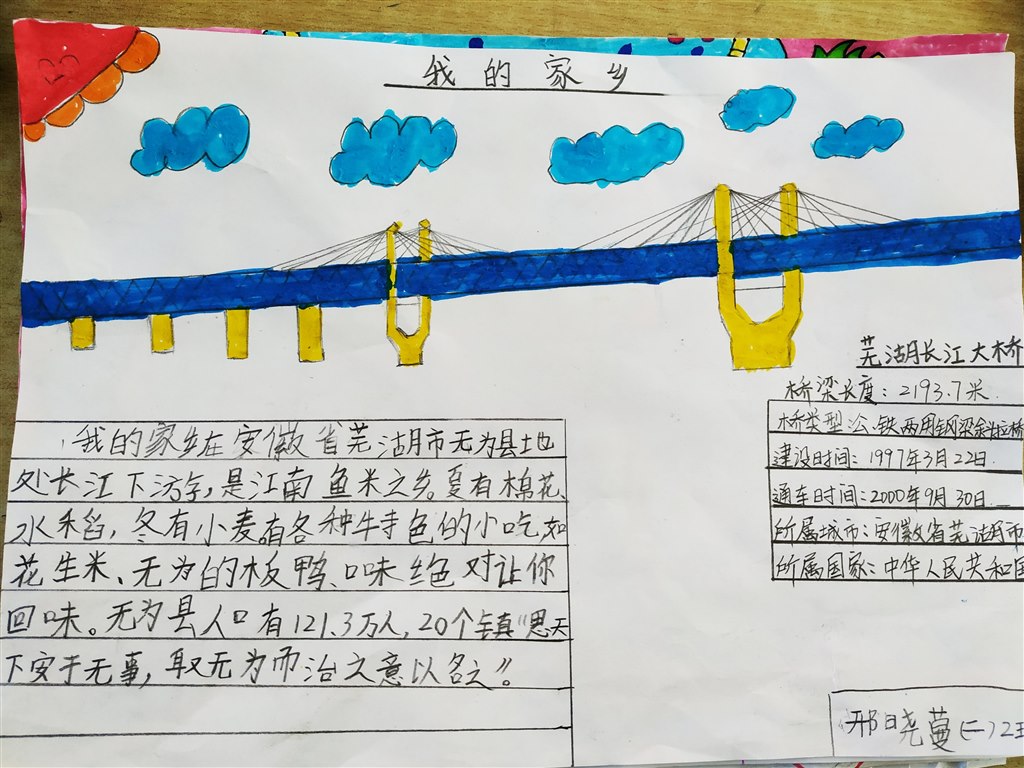 我的家乡
芜湖长江大桥
桥梁长度：2193.7米
桥类型：公、铁两用钢梁斜拉桥
建设时间：1997年3月22日
通车时间：2000年9月30日
所属城市：安徽省芜湖市
所属国家：中华人民共和国
我的家乡在安徽省芜湖市无为县地
处长江下游，是江南鱼米之乡。夏有棉花、
水稻，冬有小麦。有各种特色的小吃，如
花生米、无为的板鸭、口味绝对让你
回味。无为县人口有121.3万人，20个镇“思天
下安于无事，取无为而治之意以名之”。
邢晓蔓(二)2班